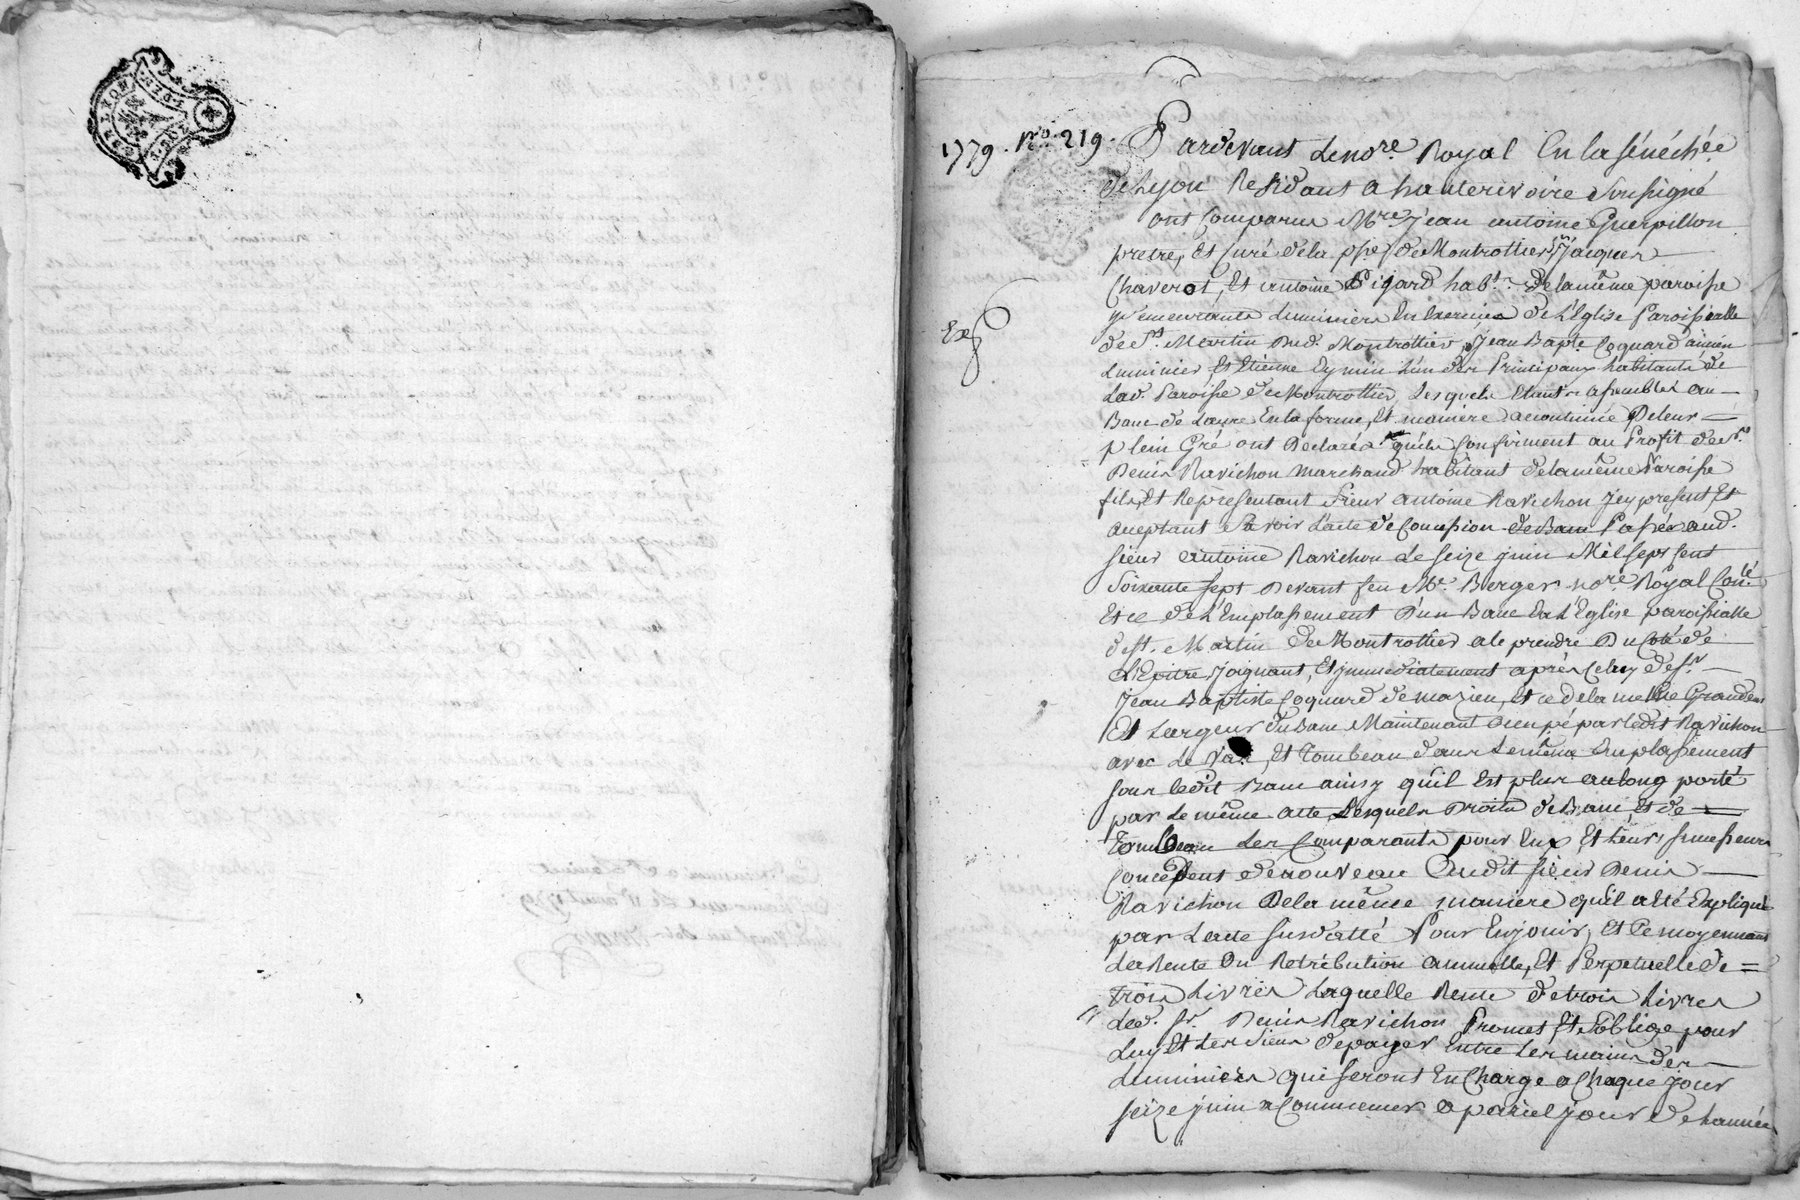 1779. No. 219. Pardevant le nore. Royal En la sénéchée
de Lyon Residant a hauterivoire Soussigné
ont Comparus Mre. Jean antoine Guerpillon
pretre, Et Curé de la psse. de Montrottier, Sr. Jacques
Chaverot, Et antoine Pigard habts. de la même paroisse
y demeurants Luminiers En Exercice de L'Eglise Paroissialle
Exp
de St. Martin Dud. Montrottier, Jean Bapte. Coquard ancien
Luminier, Et Etienne Eymin L'un des Principaux habitants de
Lad. Paroisse de Montrottier, Lesquels Etants assemblés au
Banc de L'œuvre En la forme, Et maniere accoutumée De leur
plein Gré ont Déclarés qu'ils Confirment au Profit de Sr.
Denis Ravichon marchand habitant de la même Paroisse
fils, Et Représentant Sieur antoine Ravichon Icy present Et
aceptant Savoir L'acte de Concession de Banc Passée aud.
sieur antoine Ravichon Le seize juin Mil sept sent
Soixante sept Devant feu Me. Berger nore. Royal
Et ce de L'Emplassement D'un Banc En L'Eglise paroissialle
de St. Martin de Montrottier a le prendre Du Coté de
L'Epitre, Joignant, Et jmmediatement après Celuy de Sr.
Jean Baptiste Coquard de mazieu, Et ce de la même Grandeur
Et Largeur du Banc Maintenant occupé par ledit Ravichon
avec Le Vas, Et Tombeau dans Le même Emplassement
sous ledit Banc ainsy qu'il Est plus au long porté
par Le même acte, Lesquels Droits de Banc Et de
Tombeau Les Comparants pour Eux Et Leurs successeurs
Concedent de nouveau audit sieur Denis
Ravichon De la même maniere qu'il a été Expliqué
par L'acte susdatté Pour En jouir, Et Ce moyennant
La Rente ou Rétribution annuelle, Et Perpetuelle de
trois Livres Laquelle Rente de trois Livres
Led. Sr. Denis Ravichon Promet Et s'oblige pour
Luy Et Les Siens de payer Entre Les mains des
Luminiers qui seront En Charge a Chaque jour
seize juin a Commencer a pariel jour de L'année